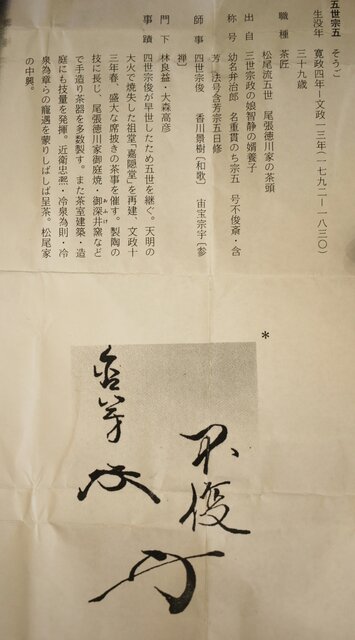 五世宗五　そうご
生没年　寛政四年ー文政一三年(一七九二ー一八三〇)
三十九歳
職種　茶匠
松尾流五世　尾張徳川家の茶頭
出自　三世宗政の娘智静の婿養子
称号　幼名弁治郎　名重貫のち宗五　号不俊斎・含
芳　法号含芳宗五日修
師事　四世宗俊　香川景樹〔和歌〕　宙宝宗宇〔参
禅〕
門下　林良益・大森高彦
事蹟　四世宗俊が早世したため五世を継ぐ。天明の
大火で焼失した祖堂「嘉隠堂」を再建、文政十
三年春、盛大な席披きの茶事を催す。製陶の
技に長じ、尾張徳川家御庭焼・御深井窯など
おふけ
で手造り茶器を多数製す。また茶室建築・造
庭にも技量を発揮。近衛忠凞・冷泉為則・冷
泉為章らの寵遇を蒙りしばしば呈茶。松尾家
の中興。
*
不俊
含芳